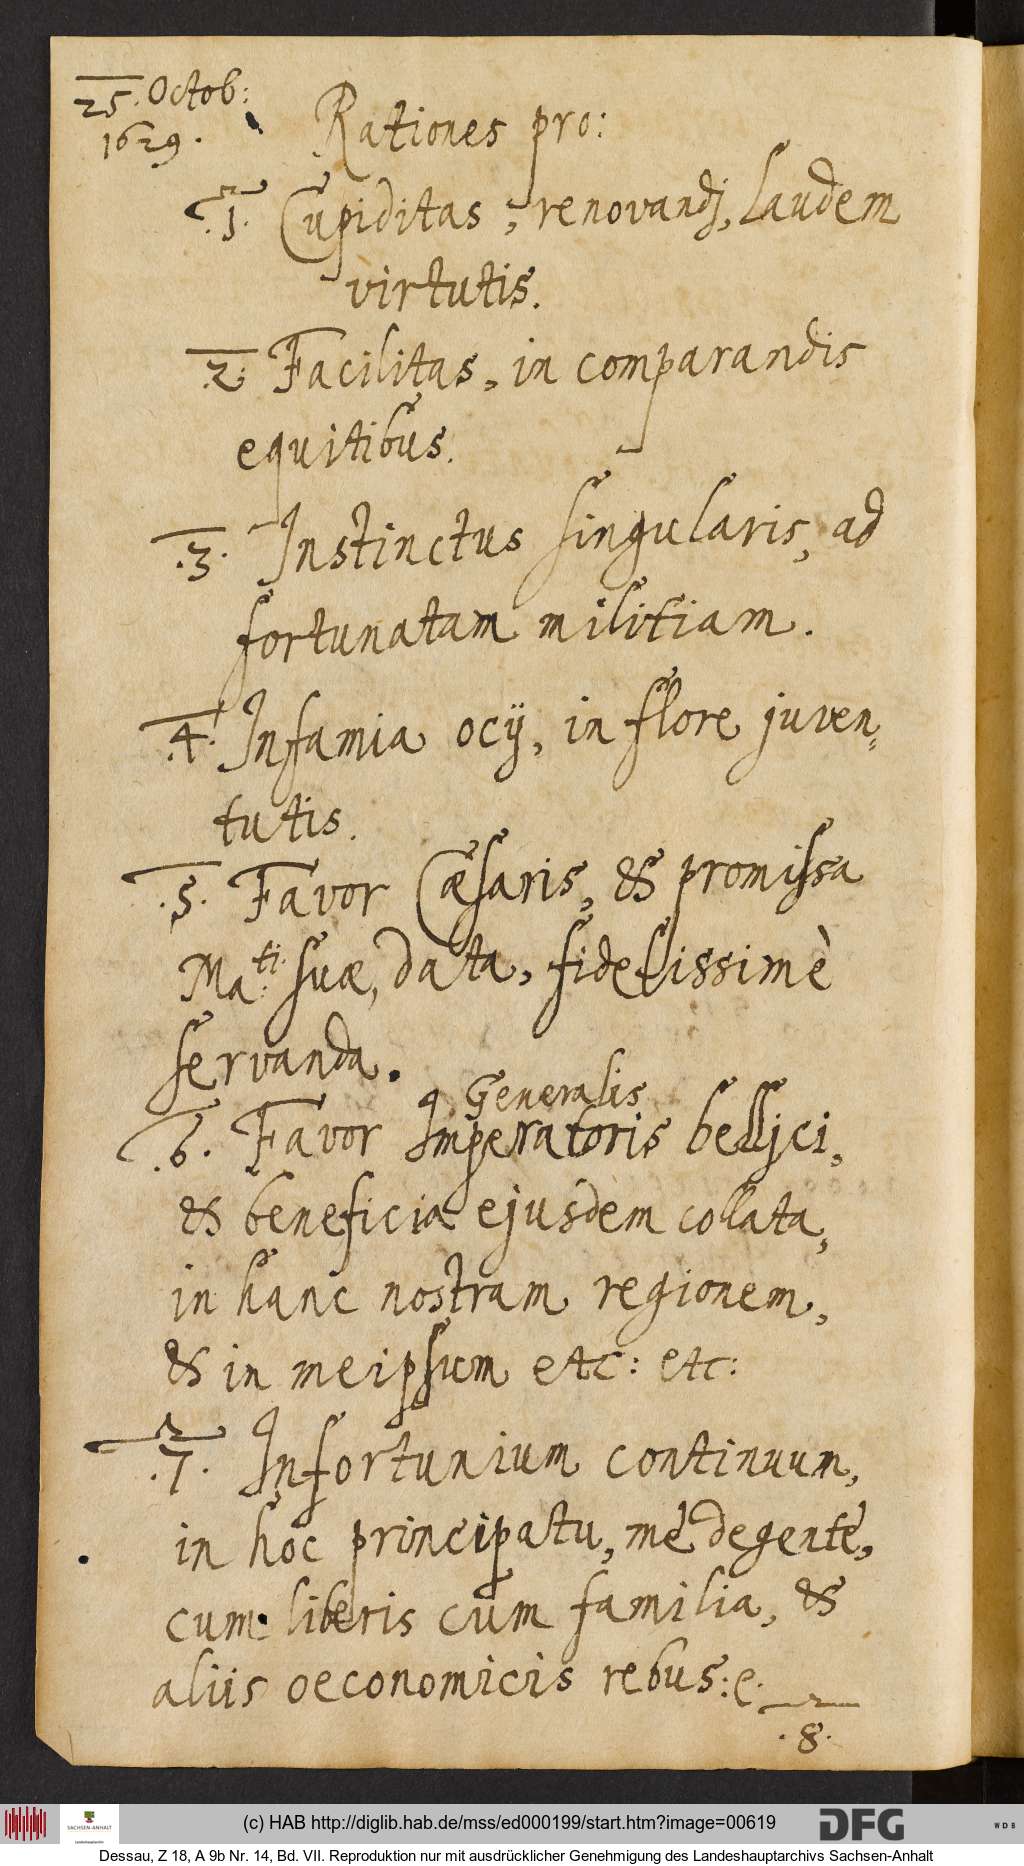 25. Octob:
1629.
Rationes pro:
.1. Cupiditas, renovandj, laudem
virtutis.
.2. Facilitas, in comparandis
equitibus.
.3. Instinctus singularis, ad
fortunatam militiam.
.4. Infamia ocij, in flore juven⸗
tutis.
.5. Favor Cæsaris, & promissa
Ma:ti. suæ, data, fidelissimè
servanda.
Generalis
.6. Favor Imperatoris bellici,
& beneficia ejusdem collata,
in hanc nostram regionem,
& in meipsum etc: etc:
.7. Infortunium continuum,
in hoc principatu, me degente,
cum liberis cum familia, &
aliis oeconomicis rebus: e.
.8.
(c) HAB http://diglib.hab.de/mss/ed000199/start.htm?image=00619
SACHSEN-ANHALT
Landeshauptarchiv
DFG
WDB
Dessau, Z 18, A 9b Nr. 14, Bd. VII. Reproduktion nur mit ausdrücklicher Genehmigung des Landeshauptarchivs Sachsen-Anhalt